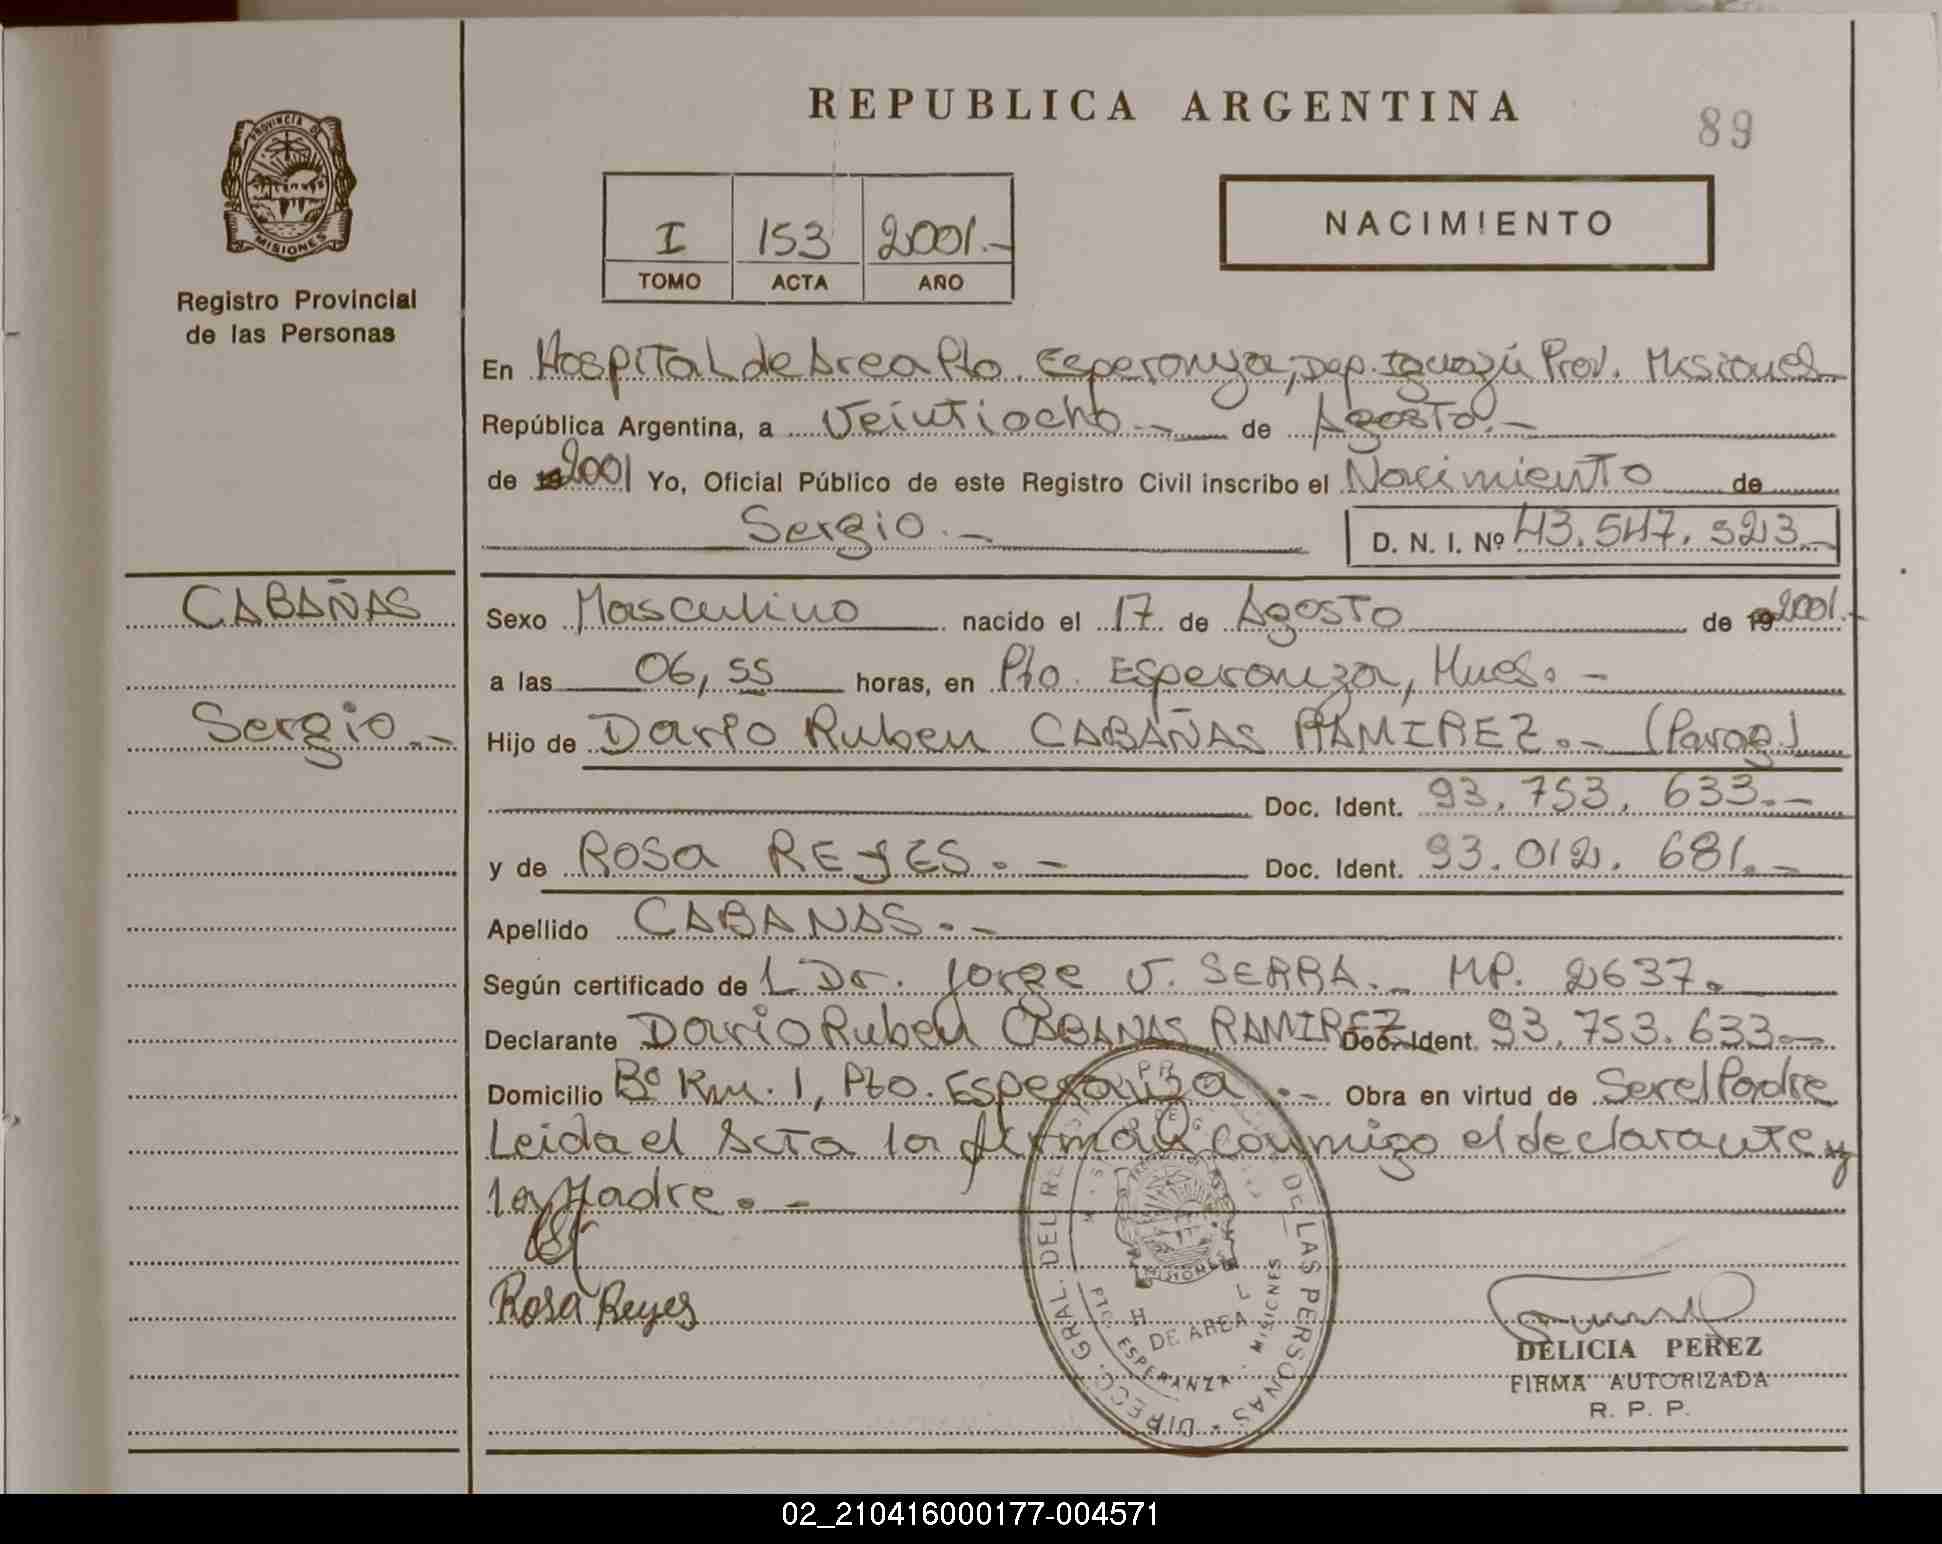 REPUBLICA ARGENTINA
89
PROVINCIA DE
MISIONES
Registro Provincial
de las Personas
I 153 2001.-
TOMO ACTA AÑO
NACIMIENTO
En Hospital de Area Pto. Esperanza, Dep. Iguazú Prov. Misiones
República Argentina, a Veintiocho.- de Agosto.-
de 2001 Yo, Oficial Público de este Registro Civil inscribo el Nacimiento de
Sergio.-
D. N. I. Nº 43.547.323-
CABAÑAS
Sergio.-
Sexo Masculino nacido el 17 de Agosto de 19 2001.-
a las 06,55 horas, en Pto. Esperanza, Mnes.-
Hijo de Dario Ruben CABAÑAS RAMIREZ.- (Parag.)
Doc. Ident. 93.753.633.-
y de Rosa REYES.- Doc. Ident. 93.012.681.-
Apellido CABANAS.-
Según certificado de L Dr. Jorge V. SERRA.- MP. 2637.
Declarante Dario Ruben CABANAS RAMIREZ Doc. Ident. 93.753.633.-
Domicilio Bº Km. 1, Pto. Esperanza.- Obra en virtud de Ser el Padre
Leida el Acta la firman conmigo el declarante y
la Madre.-
Rosa Reyes
DIRECC. GRAL. DEL R. DE LAS PERSONAS
DE AREA
PTO. ESPERANZA - MISIONES
MISIONES
DELICIA PEREZ
FIRMA AUTORIZADA
R. P. P.
02_210416000177-004571